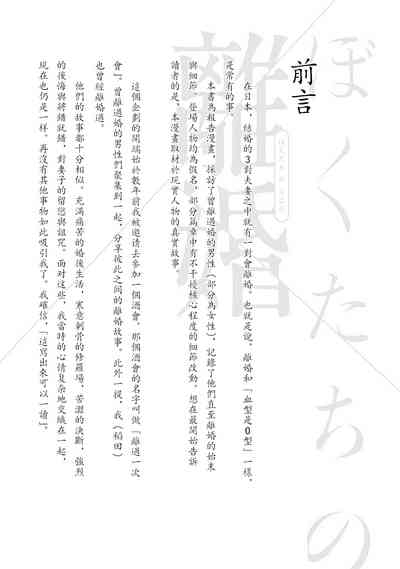 ぼくたちの
離婚
前言
在日本，結婚的3對夫妻之中就有一對會離婚。也就是說，離婚和「血型是O型」一樣，
是常有的事。
本書為報告漫畫，採訪了曾離過婚的男性（部分為女性），記錄了他們直至離婚的始末
與細節。登場人物均為假名，部分篇章中有不干擾核心程度的細節改動。想在最開始告訴
讀者的是，本漫畫取材於現實人物的真實故事。
這個企劃的開端始於數年前我被邀请去參加一個酒會，那個酒會的名字叫做「離過一次
會」。曾離過婚的男性們聚集到一起，分享彼此之間的離婚故事。此外一提，我（稻田）
也曾經離婚過。
他們的故事都十分相似。充滿痛苦的婚後生活，寒意刺骨的修羅場，苦澀的決斷，強烈
的後悔與將錯就錯，對妻子的留戀與詛咒。面對這些，我當時的心情复杂地交織在一起，
現在也仍是一樣。再沒有其他事物如此吸引我了。我確信，「這寫出來可以一讀」。